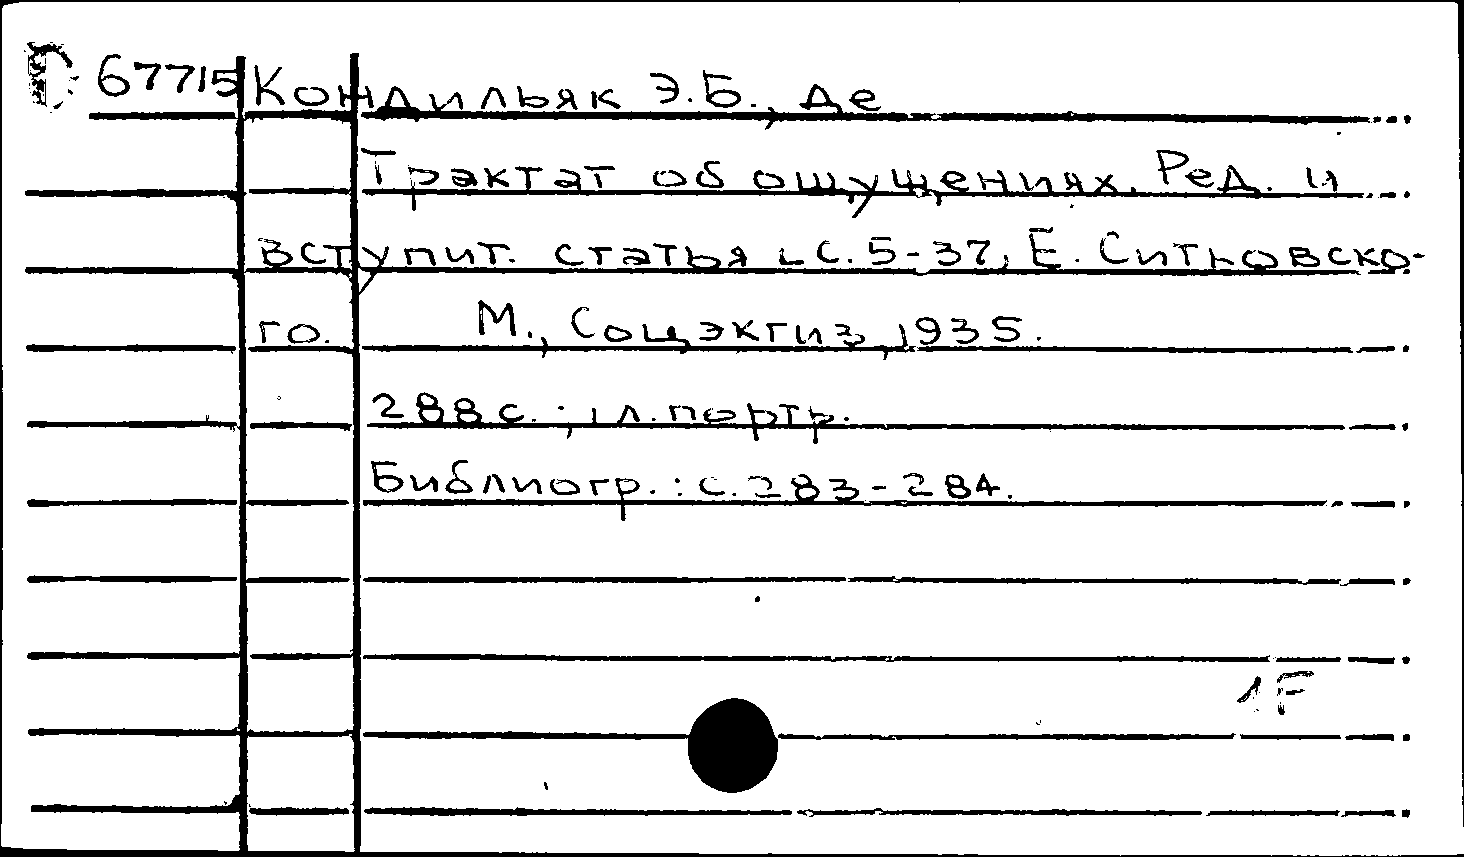 D 67715 Кондильяк Э.Б., де
Трактат об ощущениях. Ред. и
вступит. статья с. 5-37, Е. Ситковско-
го. М., Соцэкгиз, 1935.
288 с.; 1 л. портр.
Библиогр.: с. 283-284.
1F